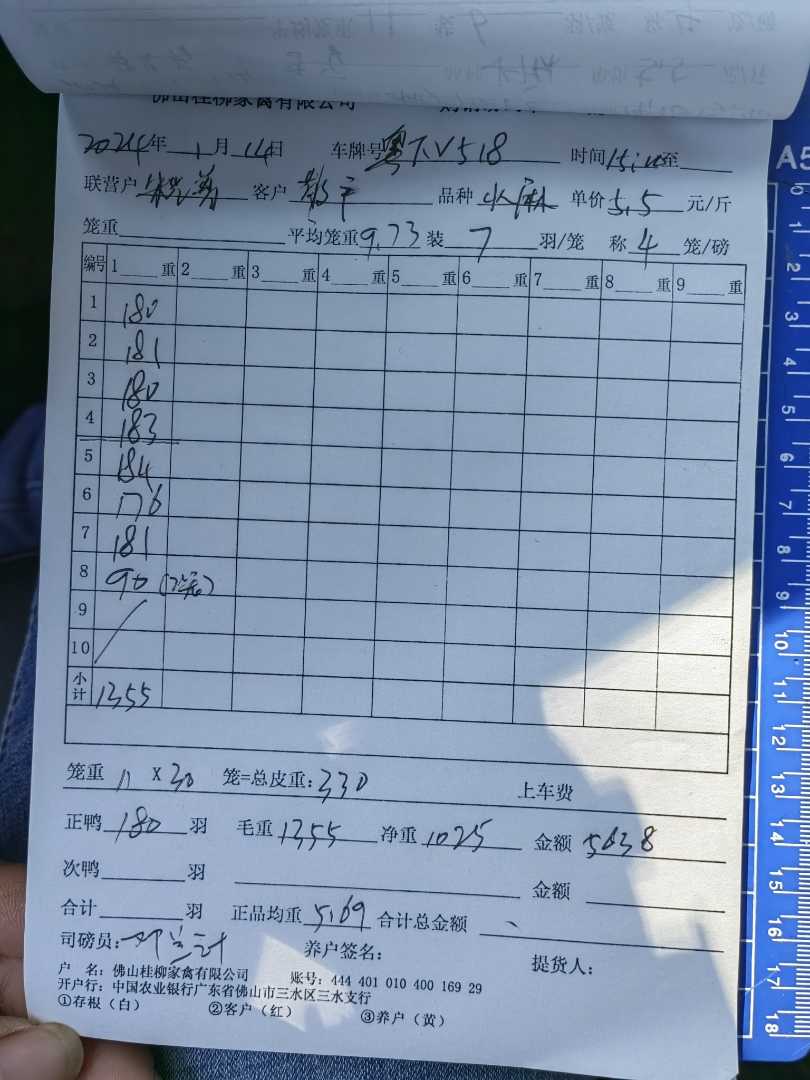 佛山桂柳家禽有限公司
2024年 1 月 14日 车牌号 粤TV518 时间15:10至
联营户 客户 散户 品种 水麻 单价5.5 元/斤
笼重 平均笼重9.73 装 7 羽/笼 称 4 笼/磅
编号 1 重 2 重 3 重 4 重 5 重 6 重 7 重 8 重 9 重
1 180
2 181
3 180
4 183
5 184
6 176
7 181
8 90 (2笼)
9
10
小计 1355
笼重 11 X 30 笼=总皮重:330 上车费
正鸭 180 羽 毛重 1355 净重 1025 金额 5638
次鸭 羽 金额
合计 羽 正品均重 5.69 合计总金额
司磅员: 养户签名: 提货人:
户 名: 佛山桂柳家禽有限公司 账号: 444 401 010 400 169 29
开户行: 中国农业银行广东省佛山市三水区三水支行
①存根(白) ②客户(红) ③养户(黄)
A5
0
1
2
3
4
5
6
7
8
9
10
11
12
13
14
15
16
17
18